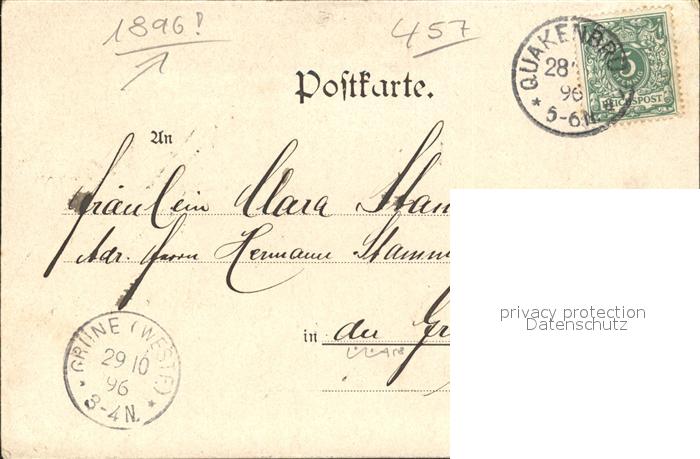 1896!
457
Postkarte.
QUAKENBRÜ
28
96
5-6N.
5
REICHSPOST
An
Fräulein Clara Stam
Adr. Herrn Hermann Stamm
in der Grü
GRÜNE (WESTF.)
29 10
96
3-4N.
privacy protection
Datenschutz